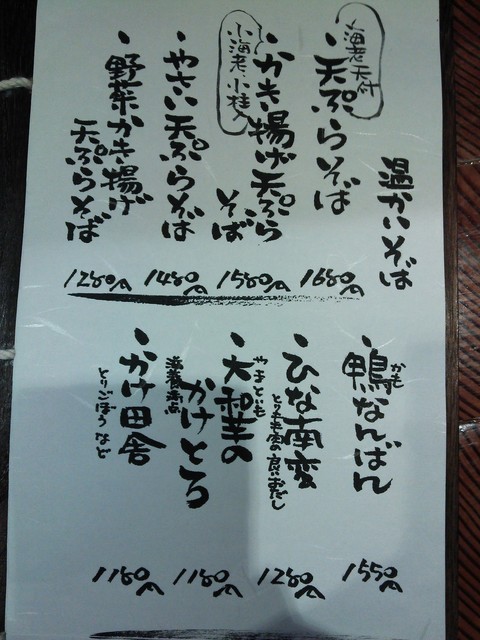 温かいそば
海老天付
・天ぷらそば
1680円
小海老、小柱入
・かき揚げ天ぷら
そば
1580円
・やさい天ぷらそば
1480円
・野菜かき揚げ
天ぷらそば
1280円
・鴨なんばん
かも
1550円
・ひな南蛮
とりもも肉の良いおだし
1280円
・大和芋の
やまといも
かけとろ
滋養満点
1180円
・かけ田舎
とりごぼうなど
1180円